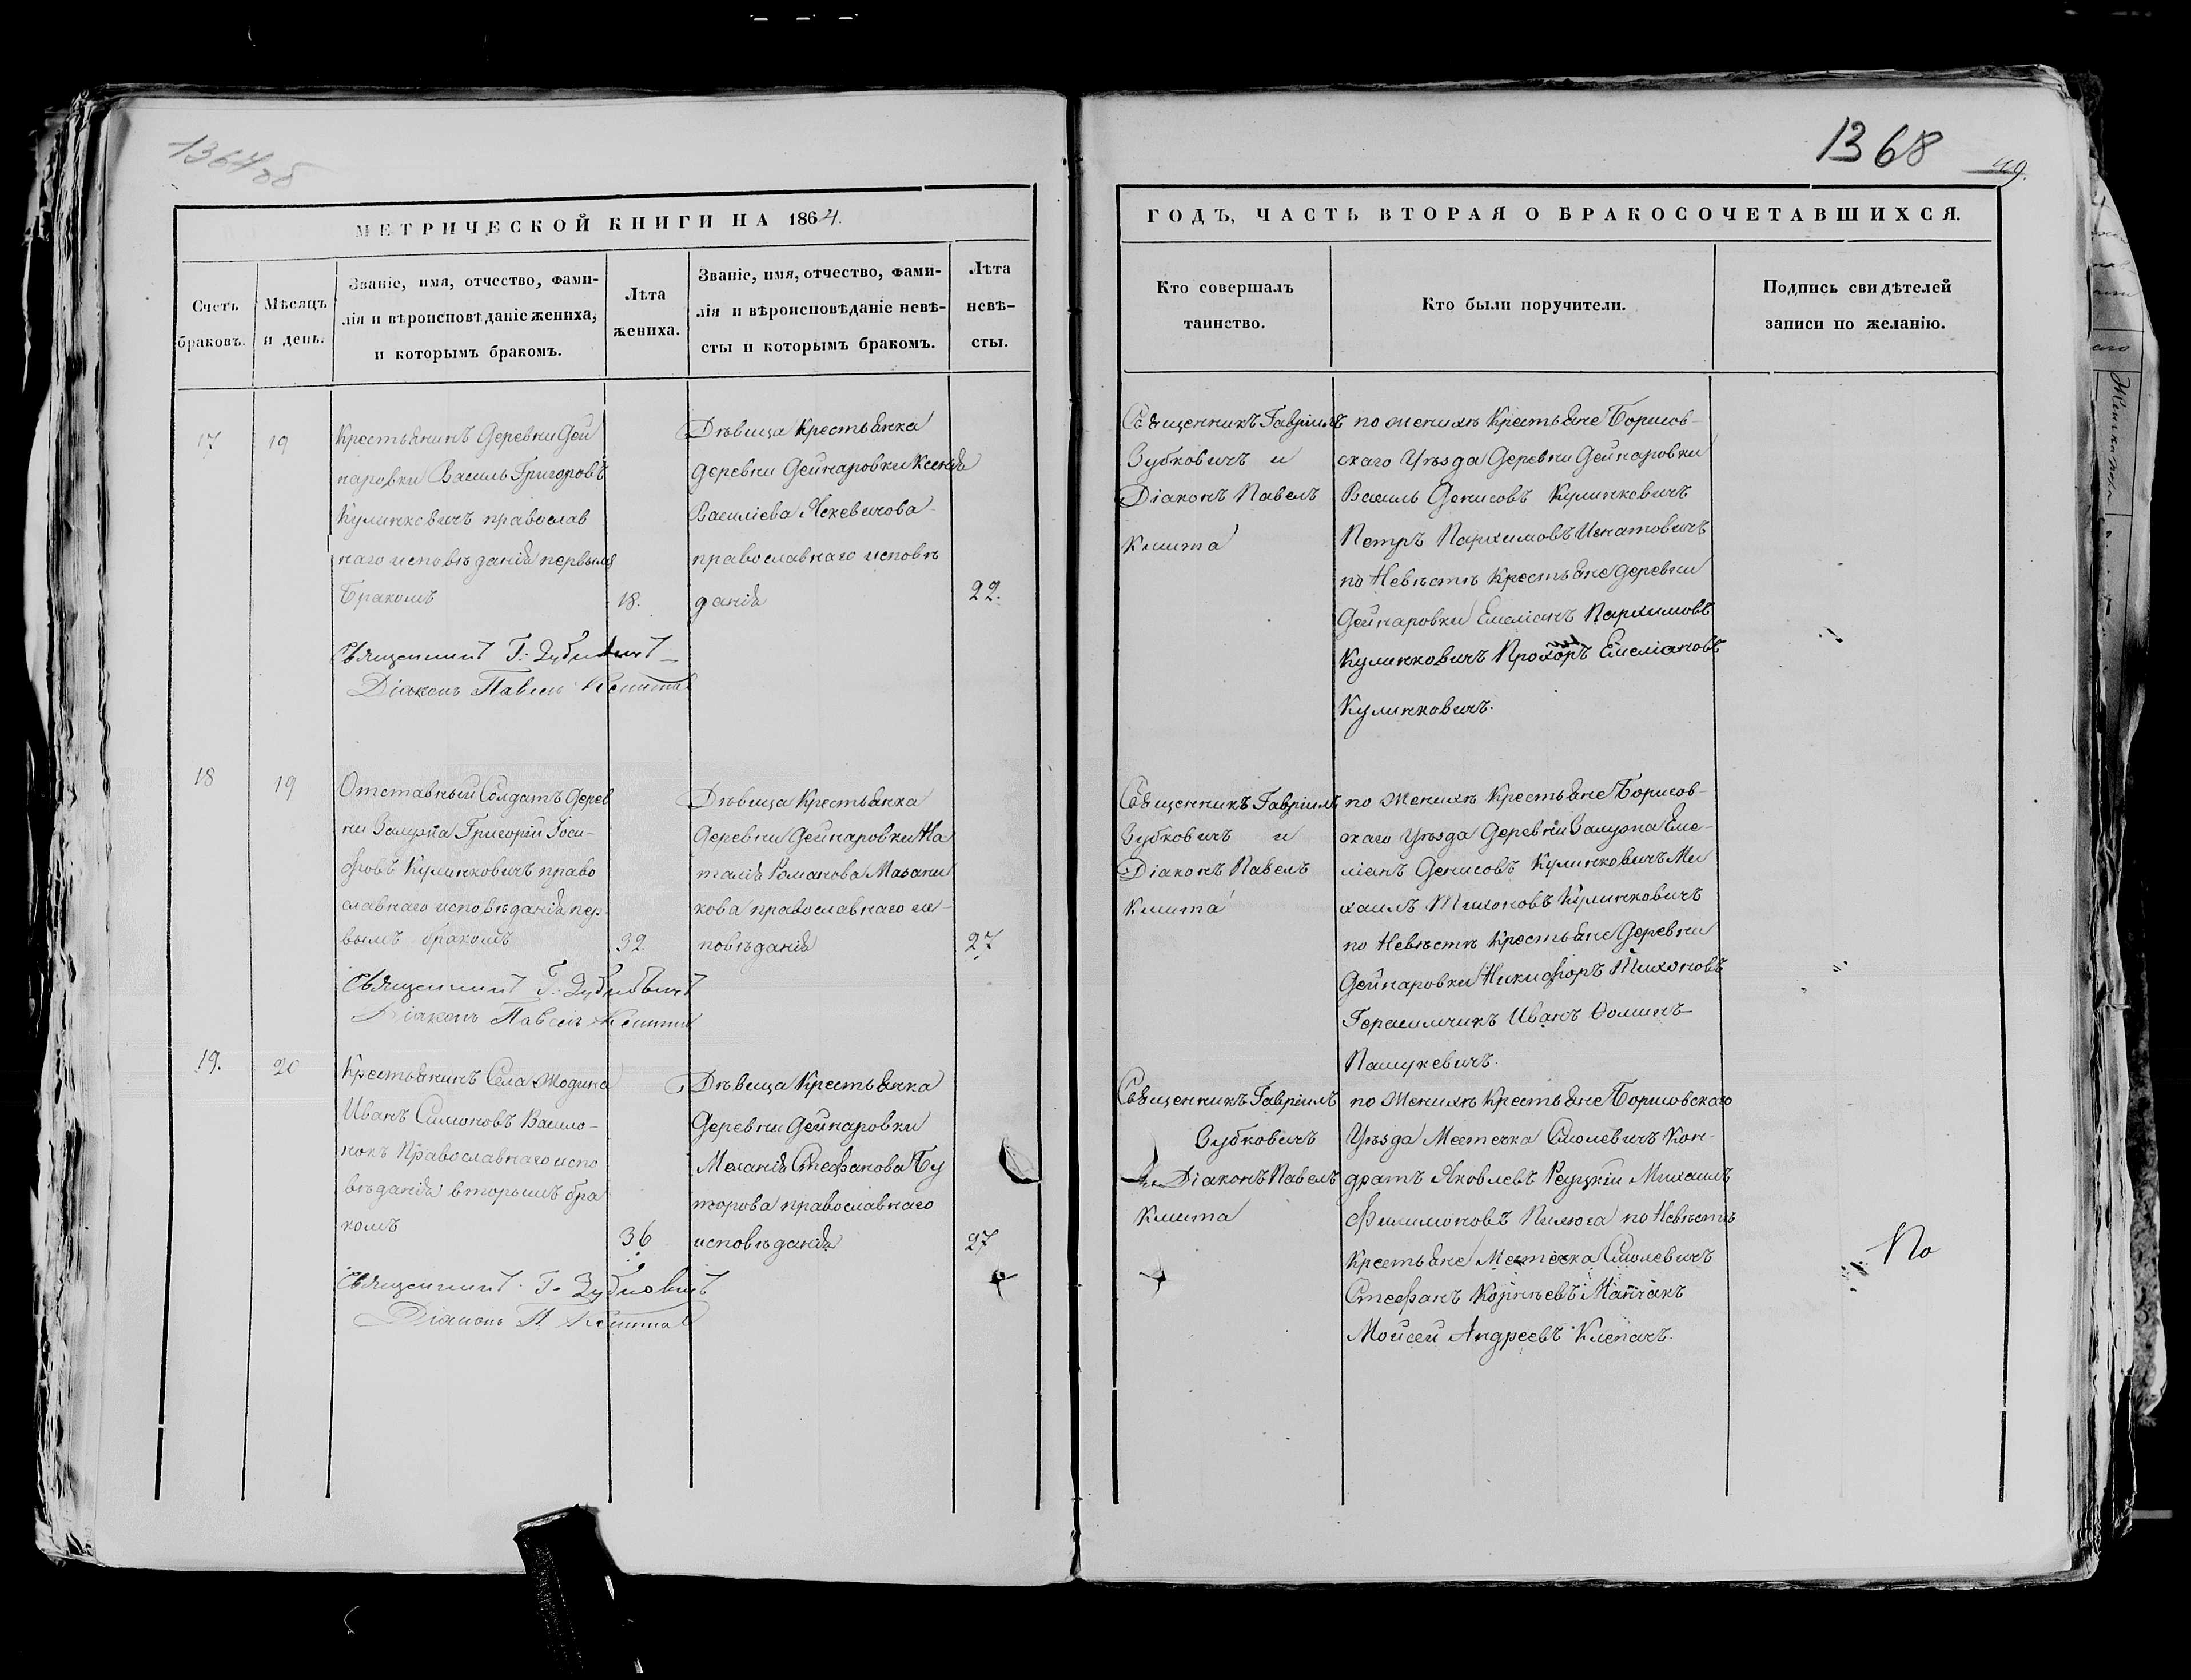 1364об
МЕТРИЧЕСКОЙ КНИГИ НА 1864.
Счетъ браковъ.
Мѣсяцъ и день.
Званіе, имя, отчество, фами-
лія и вѣроисповѣданіе жениха,
и которымъ бракомъ.
Лѣта
жениха.
Званіе, имя, отчество, фами-
лія и вѣроисповѣданіе невѣ-
сты и которымъ бракомъ.
Лѣта
невѣ-
сты.
17
19
Крестьянинъ Деревни Дей
наровки Василь Григоровъ
Кулинковичъ православ
наго исповѣданія первымъ
бракомъ
18.
Священникъ Г. Зубковичъ
Діаконъ Павелъ Кмита
Дѣвица Крестьянка
деревни Дейнаровки Ксенія
Василіева Яскевичова
православнаго исповѣ
данія
22.
18
19
Отставный Солдатъ Дерев
ни Залузпа Григорій Іоси-
фовъ Кулинковичъ право
славнаго исповѣданія пер-
вымъ бракомъ
32
Священникъ Г. Зубковичъ
Діаконъ Павелъ Кмита
Дѣвица Крестьянка
Деревни Дейнаровки На
талія Романова Мазани
кова православнаго ис-
повѣданія
27
19.
20
Крестьянинъ Села Жодина
Иванъ Симоновъ Василе-
нокъ Православнаго испо
вѣданія вторымъ бра
комъ
36
Священникъ Г. Зубковичъ
Діаконъ П. Кмита
Дѣвица Крестьянка
Деревни Дейнаровки
Меланія Стефанова Бу
торова православнаго
исповѣданія
27
1368
49.
ГОДЪ, ЧАСТЬ ВТОРАЯ О БРАКОСОЧЕТАВШИХСЯ.
Кто совершалъ
таинство.
Кто были поручители.
Подпись свидѣтелей
записи по желанію.
Священникъ Гавріилъ
Зубковичъ и
Діаконъ Павелъ
Кмита
по женихѣ Крестьяне Борисов-
скаго Уѣзда Деревни Дейнаровки
Василь Денисовъ Кулинковичъ
Петръ Пархимовъ Игнатовичъ
по Невѣстѣ Крестьяне деревни
Дейнаровки Емеліанъ Пархимовъ
Кулинковичъ Прохоръ Емеліановъ
Кулинковичъ.
Священникъ Гавріилъ
Зубковичъ и
Діаконъ Павелъ
Кмита
по Женихѣ Крестьяне Борисов-
скаго Уѣзда Деревни Залузпа Еме-
ліанъ Денисовъ Кулинковичъ Ми
хаилъ Тихоновъ Кулинковичъ
по Невѣстѣ Крестьяне Деревни
Дейнаровки Никифоръ Тихоновъ
Герасимчикъ Иванъ Ѳоминъ
Пашукевичъ.
Священникъ Гавріилъ
Зубковичъ
и Діаконъ Павелъ
Кмита
по Женихѣ Крестьяне Борисовскаго
Уѣзда Местечка Смолевичъ Кон-
дратъ Яковлевъ Реуцкій Михаилъ
Филимоновъ Пилюга по Невѣстѣ
Крестьяне Местечка Смолевичъ
Стефанъ Корнѣевъ
Мойсей Андреевъ Клепачъ.
По